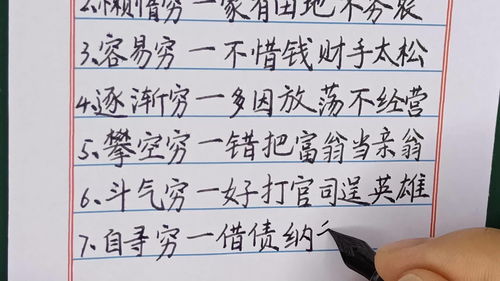 2.懒惰穷一家有田地不务农
3.容易穷一不惜钱财手太松
4.逐渐穷一多因放荡不经营
5.攀空穷一错把富翁当亲翁
6.斗气穷一好打官司逞英雄
7.自寻穷一借债纳